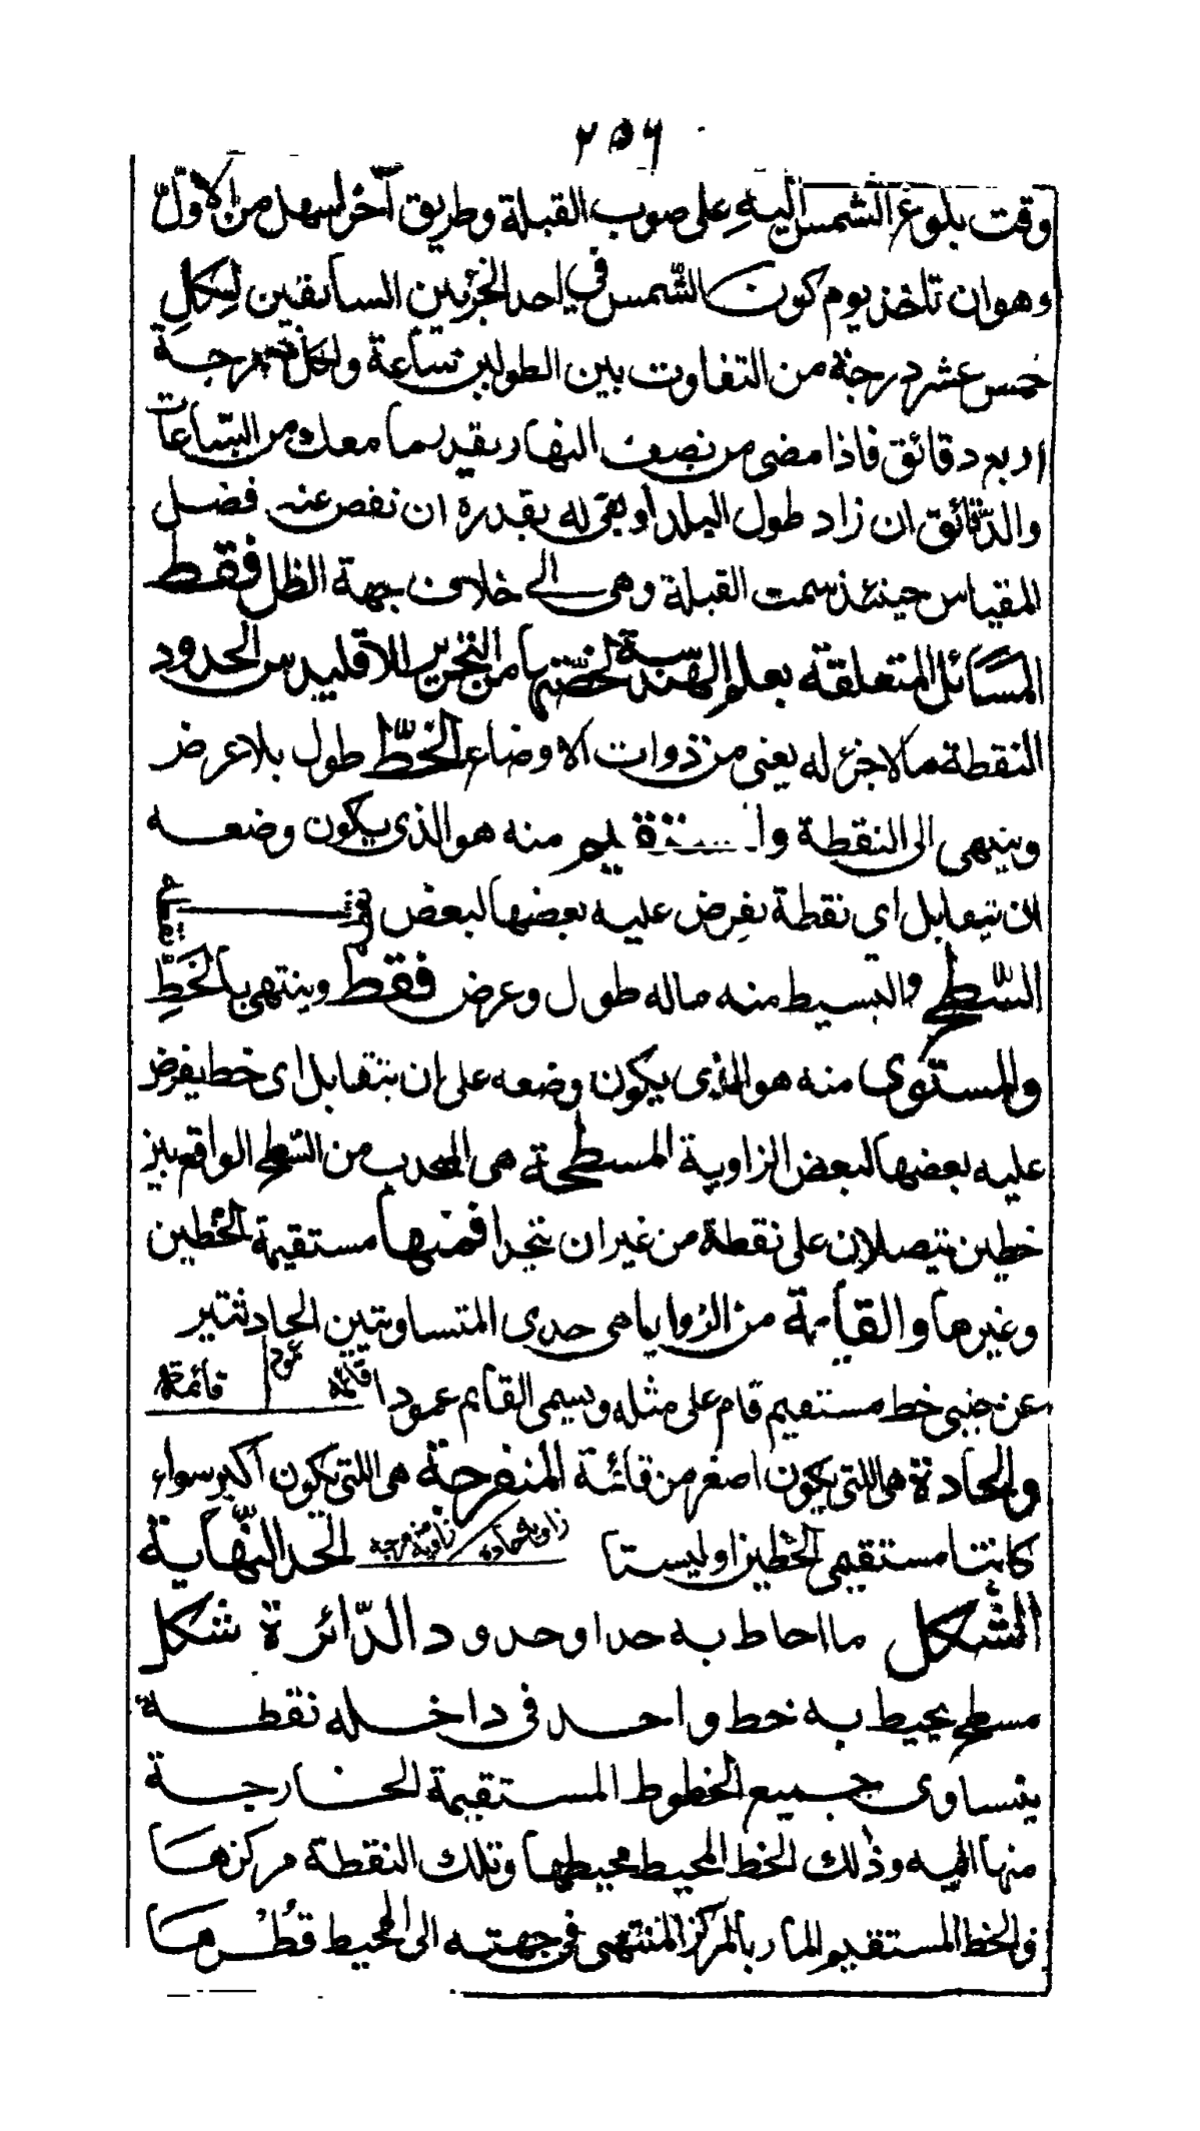 ٢٥٦
وقت بلوغ الشمس اليه على صوب القبلة وطريق آخر اسهل من الاول
وهو ان تاخذ يوم كون الشمس في احد الجزئين السابقين لكل
خمس عشر درجة من التفاوت بين الطولين ساعة ولكل درجة
اربع دقائق فاذا مضى من نصف النهار بقدر ما معك من الساعات
والدّقائق ان زاد طول البلد او بقى له بقدره ان نقص عنه فضل
المقياس حينئذ سمت القبلة وهى الى خلاف جهة الظل فقط
المسائل المتعلقة بعلم الهندسة من التحرير للاقليدس الحدود
النقطة مالا جزء له يعنى من ذوات الاوضاع الخطّ طول بلا عرض
وينتهى الى النقطة والمستقيم منه هو الذى يكون وضعه
ان تتقابل اى نقطة تفرض عليه بعضها لبعض
السّطح والبسيط منه ماله طول وعرض فقط وينتهى بالخطِّ
والمستوى منه هو الذى يكون وضعه على ان تتقابل اى خط يفرض
عليه بعضها لبعض الزاوية المسطحة هى المحدب من السّطح الواقع بين
خطين يتصلان على نقطة من غير ان يتحدا فمنها مستقيمة الخطين
وغيرها والقائمة من الزوايا هى احدى المتساويتين الحادثتين
عن جنبى خط مستقيم قام على مثله ويسمى القايم عمودا قائمة عمود قائمة
والحادة هى اللتى يكون اصغر من قائمة المنفرجة هى اللتى يكون اكبر سواء
كانتا مستقيمى الخطين او ليستا زاوية حادة زاوية منفرجة الحد النّهاية
الشّكل ما احاط به حد او حدود الدّائرة شكل
مسطح يحيط به خط واحد فى داخله نقطة
يتساوى جميع الخطوط المستقيمة الخارجة
منها اليه وذلك الخط المحيط محيطها وتلك النقطة مركزها
والخط المستقيم المار بالمركز المنتهى فى جهتيه الى المحيط قُطْرها